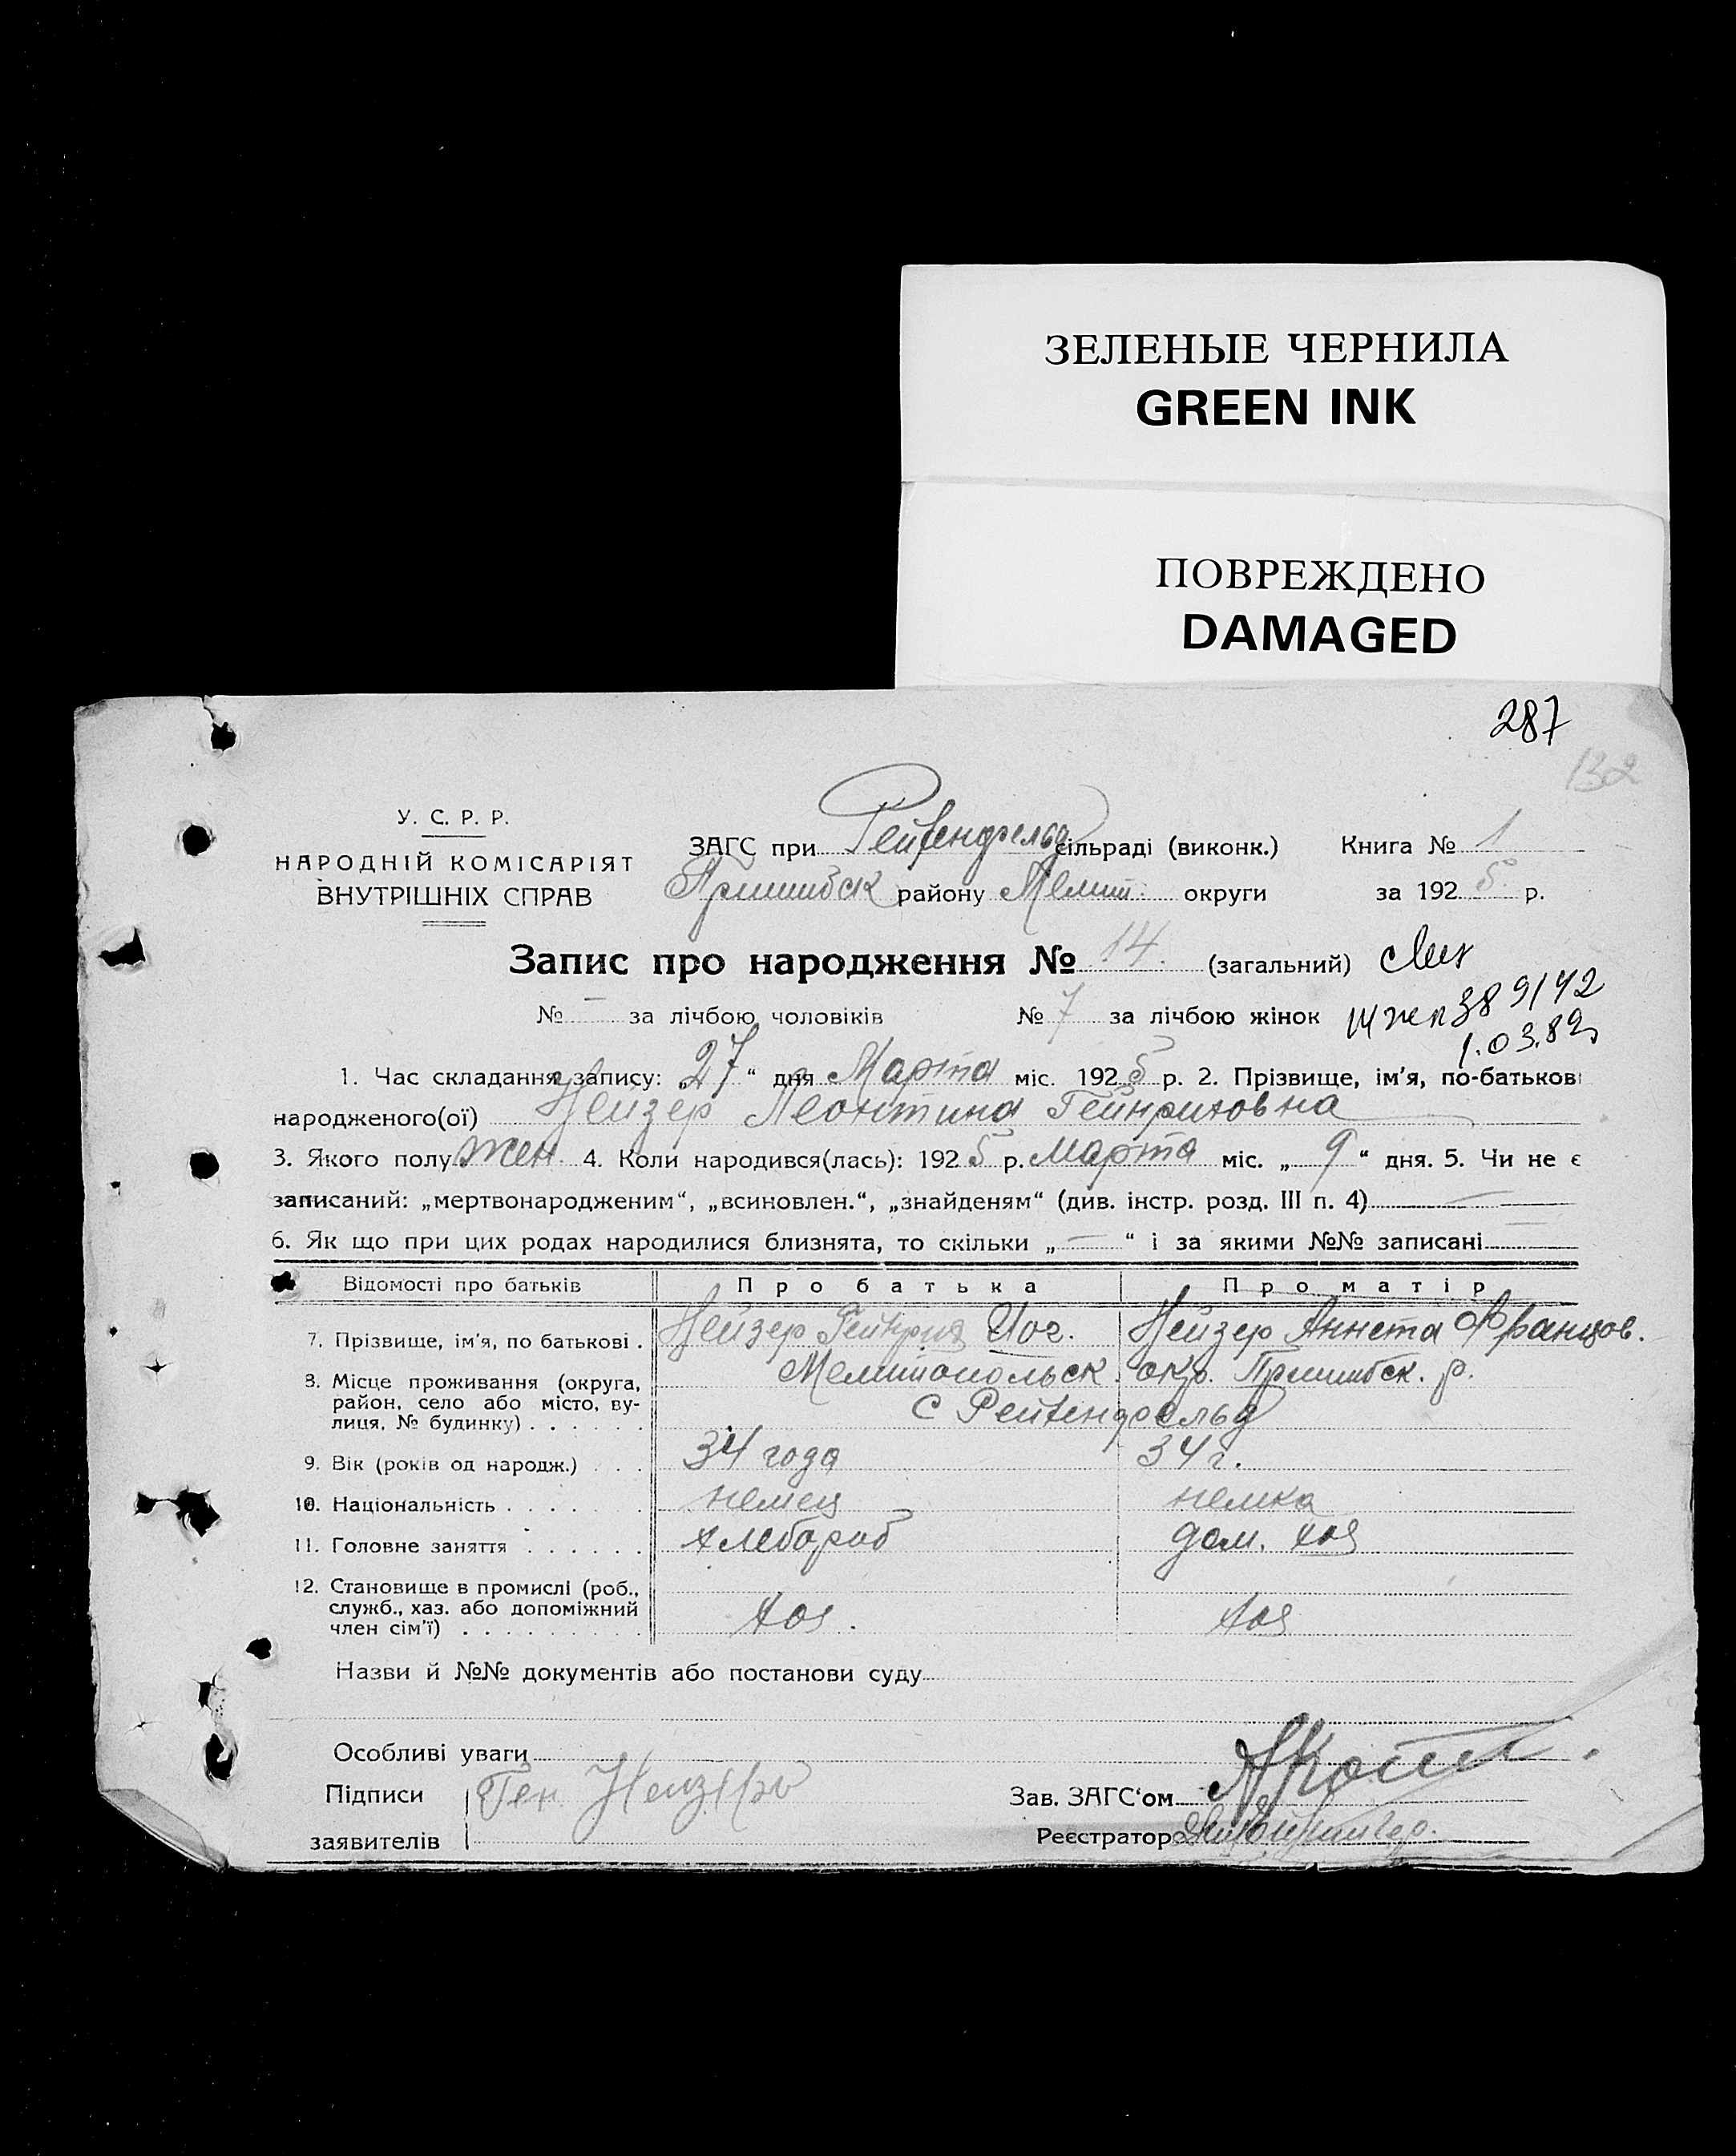 ЗЕЛЕНЫЕ ЧЕРНИЛА
GREEN INK
ПОВРЕЖДЕНО
DAMAGED
287
132
У. С. Р. Р.
НАРОДНІЙ КОМІСАРІЯТ
ВНУТРІШНІХ СПРАВ
ЗАГС при Рейхенфельд сільраді (виконк.) Книга № 1
Пришибск району Мелит. округи за 1925 р.
Запис про народження № 14. (загальний)
№ — за лічбою чоловіків № 7 за лічбою жінок
389142
1.03.82
1. Час складання запису: 27 " дня Марта міс. 1925 р. 2. Прізвище, ім'я, по-батькові
народженого(ої) Нейзер Леонтина Гейнриховна
3. Якого полу жен. 4. Коли народився(лась): 1925 р. Марта міс. „ 9 " дня. 5. Чи не є
записаний: „мертвонародженим", „всиновлен.", „знайденям" (див. інстр. розд. III п. 4) —
6. Як що при цих родах народилися близнята, то скільки „ — " і за якими №№ записані —
Відомості про батьків Про батька Про матір
7. Прізвище, ім'я, по батькові . Нейзер Гейнрих Иог. Нейзер Аннета Францов.
8. Місце проживання (округа, Мелитопольск. окр. Пришибск. р.
район, село або місто, ву-
лиця, № будинку) . . . . . . с Рейхенфельд
9. Вік (років од народж.) . . . 34 года 34 г.
10. Національність . . . . . . немец немка
11. Головне заняття . . . . . . хлебороб дом. хоз
12. Становище в промислі (роб.,
служб., хаз. або допоміжний
член сім'ї) . . . . . . . . . хоз. хоз
Назви й №№ документів або постанови суду
Особливі уваги
Підписи Ген Нейзер
Зав. ЗАГС'ом
заявителів
Реєстратор